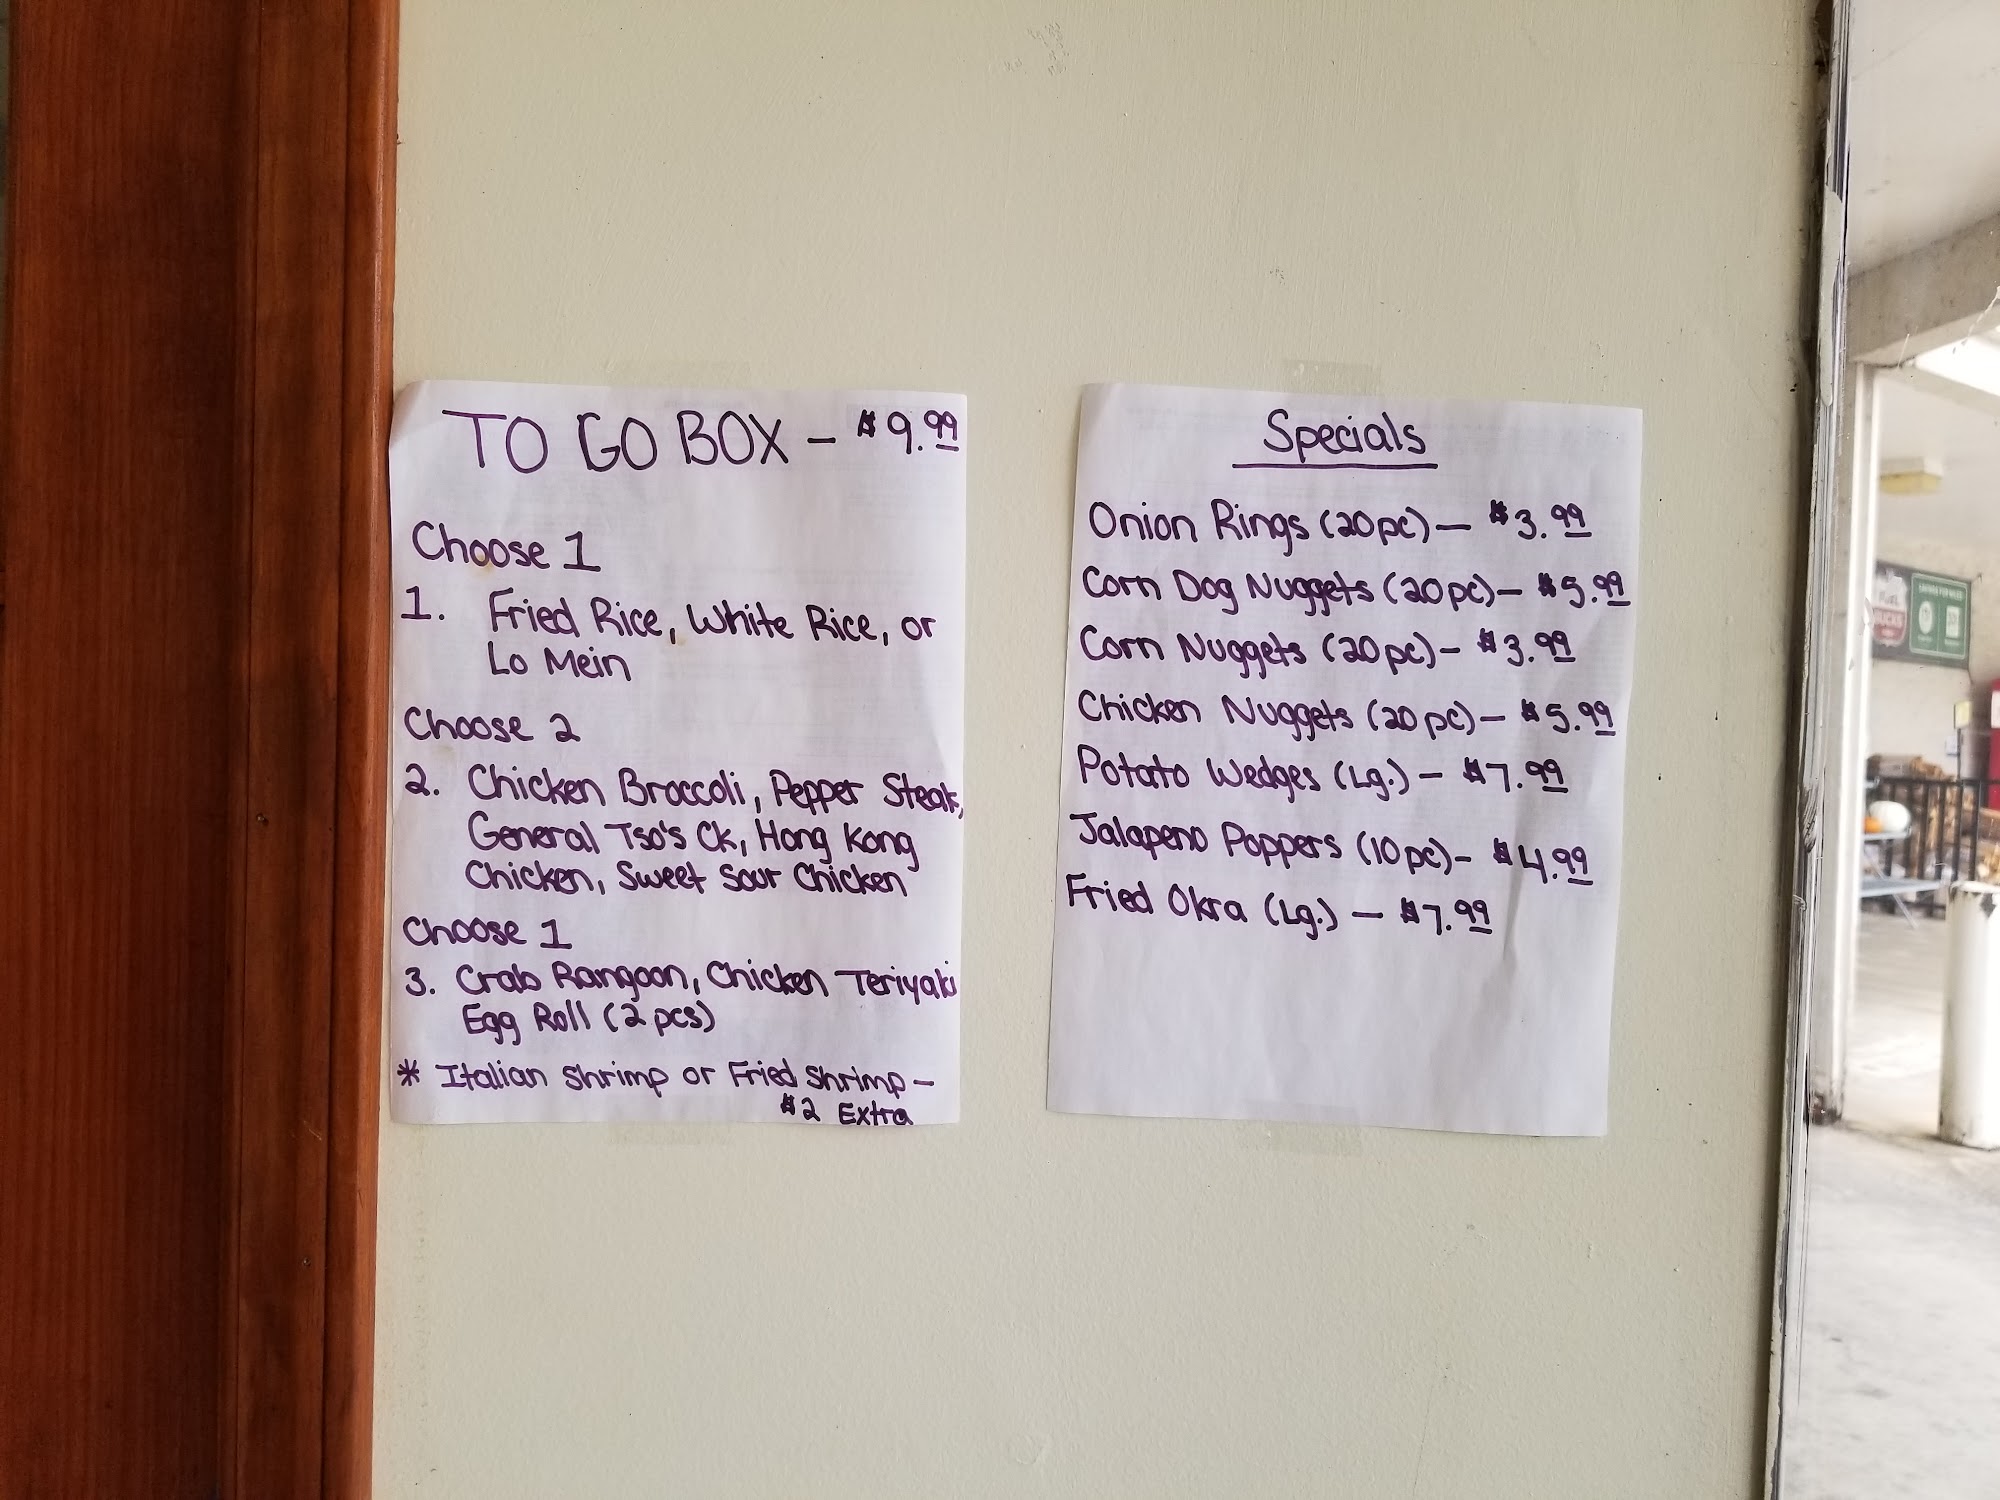 TO GO BOX — $9.99
Choose 1
1. Fried Rice, White Rice, or
Lo Mein
Choose 2
2. Chicken Broccoli, Pepper Steak,
General Tso's Ck, Hong Kong
Chicken, Sweet Sour Chicken
Choose 1
3. Crab Rangoon, Chicken Teriyaki
Egg Roll (2 pcs)
* Italian Shrimp or Fried Shrimp —
$2 Extra
Specials
Onion Rings (20 pc) — $3.99
Corn Dog Nuggets (20 pc) — $5.99
Corn Nuggets (20 pc) — $3.99
Chicken Nuggets (20 pc) — $5.99
Potato Wedges (Lg.) — $7.99
Jalapeno Poppers (10 pc) — $4.99
Fried Okra (Lg.) — $7.99